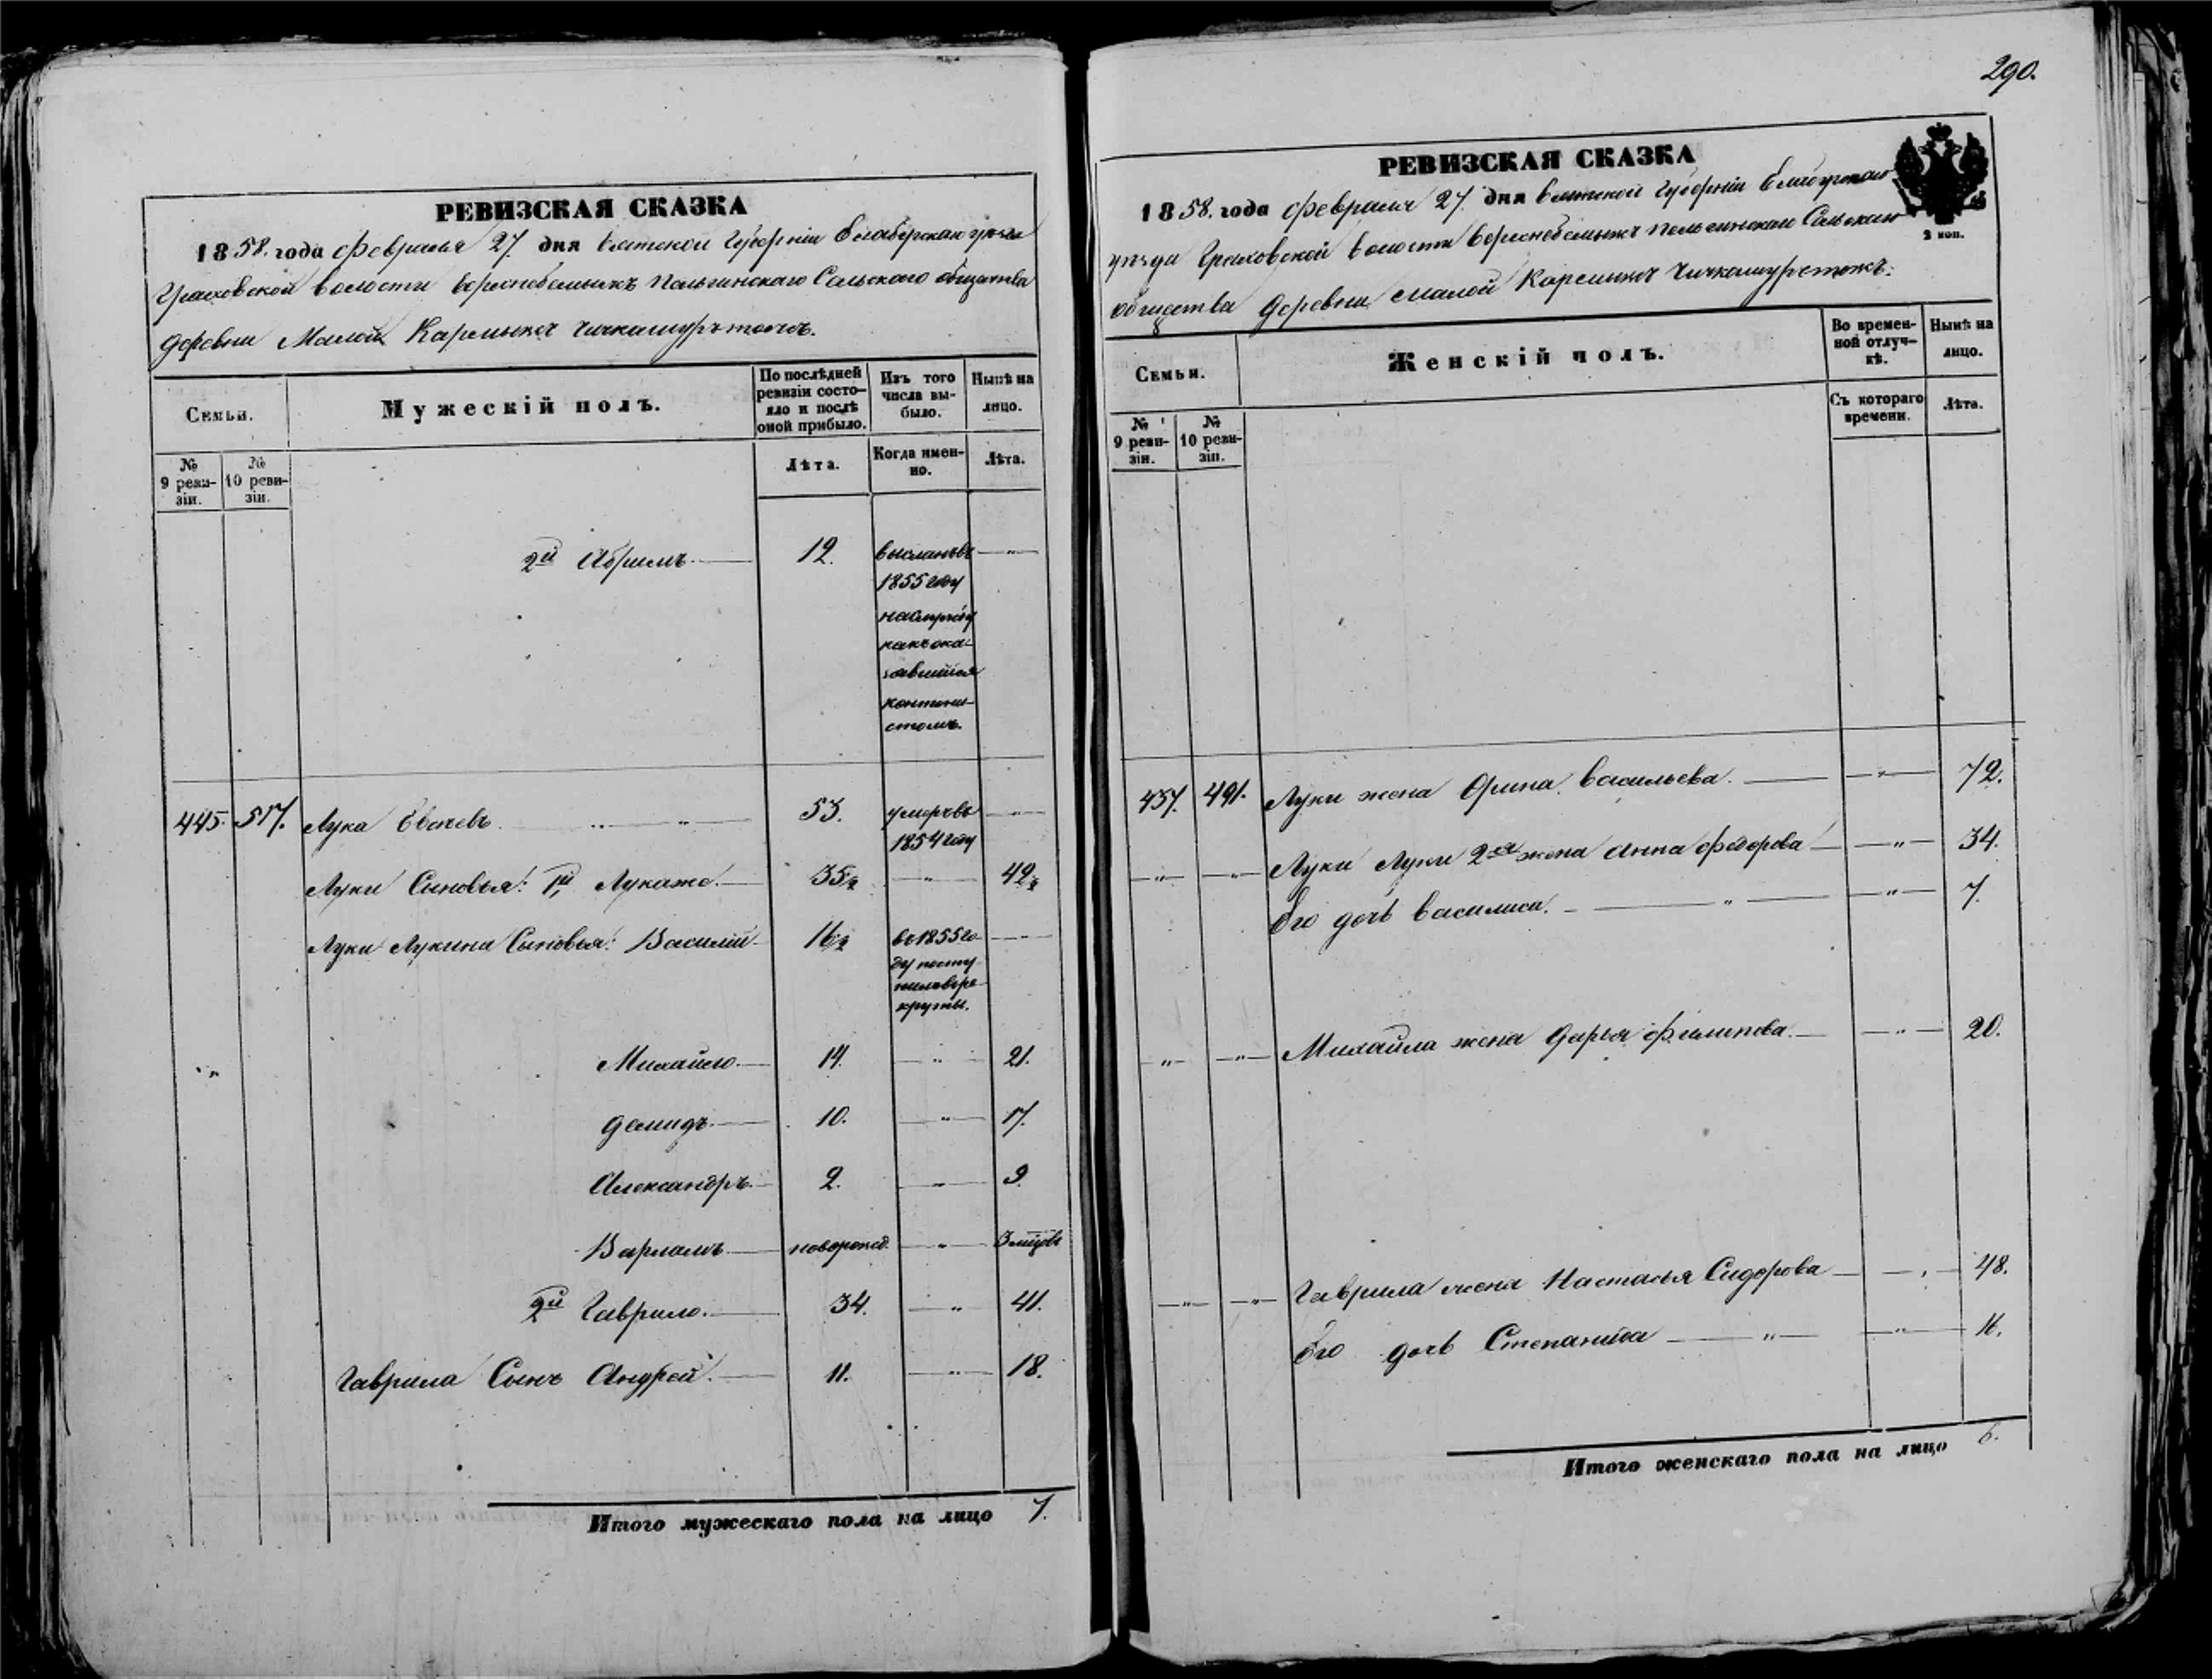 290.
РЕВИЗСКАЯ СКАЗКА
1858. года Февраля 27. дня Вятской Губерніи Елабугскаго уѣзда
Граховской волости Вересне
Сельскаго общества
деревни Малой Карлыкъ Чичкашуръ тожъ.
Семьи.
Мужескій полъ.
По послѣдней ревизіи состояло и послѣ оной прибыло.
Изъ того числа выбыло.
Нынѣ на лицо.
№ 9 ревизіи.
№ 10 ревизіи.
Лѣта.
Когда именно.
Лѣта.
2й Абрамъ 12. высланъ въ
1855 году
на службу
какъ ока-
завшійся
кантони-
стомъ.
445. 517. Лука 53. умеръ въ
1854 году
Луки Сыновья: 1й Лука же. 35½ 42½
Луки Лукина Сыновья: Василій 16½ въ 1855 го-
ду посту-
пилъ в ре-
круты.
Михайло 14. 21.
Демидъ 10. 17.
Александръ 2. 9.
Варламъ новорожд. 3 мѣцовъ
2й Гаврило. 34. 41.
Гаврила Сынъ Андрей. 11. 18.
Итого мужескаго пола на лицо 7.
РЕВИЗСКАЯ СКАЗКА
1858. года Февраля 27. дня Вятской Губерніи Елабугскаго
уѣзда Граховской волости Сельскаго
общества деревни Малой Карлыкъ Чичкашуръ тожъ.
2 коп.
Семьи.
Женскій полъ.
Во временной отлучкѣ.
Нынѣ на лицо.
№ 9 ревизіи.
№ 10 ревизіи.
Съ котораго времени.
Лѣта.
457. 491. Луки жена Орина Васильева. 72.
Луки Луки 2ая жена Анна Федорова 34.
Его дочь Василиса. 7.
Михаила жена Дарья Филипова. 20.
Гаврила жена Настасья Сидорова 48.
Его дочь Степанида 16.
Итого женскаго пола на лицо 6.